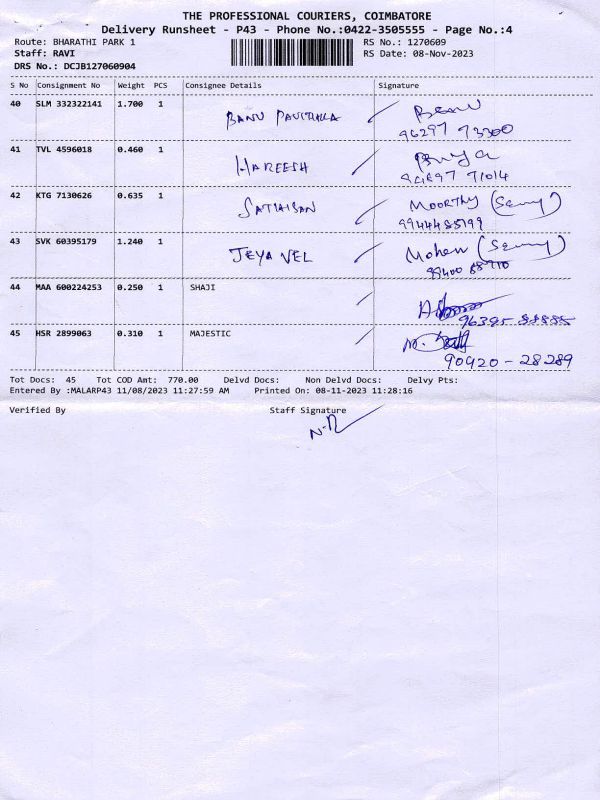 THE PROFESSIONAL COURIERS, COIMBATORE
Delivery Runsheet - P43 - Phone No.:0422-3505555 - Page No.:4
Route: BHARATHI PARK 1 RS No.: 1270609
Staff: RAVI RS Date: 08-Nov-2023
DRS No.: DCJB127060904
S No Consignment No Weight PCS Consignee Details Signature
40 SLM 332322141 1.700 1 BANU PAVITHRA Banu
96297 73300
41 TVL 4596018 0.460 1 HAREESH Priya
71014
42 KTG 7130626 0.635 1 SATHISAN MOORTHY
9944485199
43 SVK 60395179 1.240 1 JEYA VEL Mohan
99400
44 MAA 600224253 0.250 1 SHAJI
96395-88885
45 HSR 2899063 0.310 1 MAJESTIC
90920-28289
Tot Docs: 45 Tot COD Amt: 770.00 Delvd Docs: Non Delvd Docs: Delvy Pts:
Entered By :MALARP43 11/08/2023 11:27:59 AM Printed On: 08-11-2023 11:28:16
Verified By Staff Signature